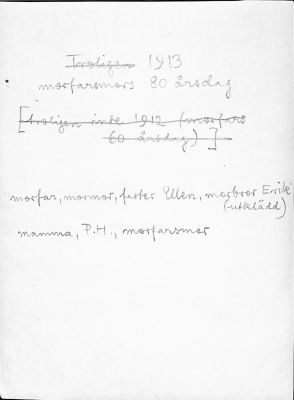 Troligen 1913
morfarsmors 80 årsdag
[troligen inte 1912 (morfars
60 årsdag)]
morfar, mormor, faster Ellen, morbror Erik
(utklädd)
mamma, P.H., morfarsmor